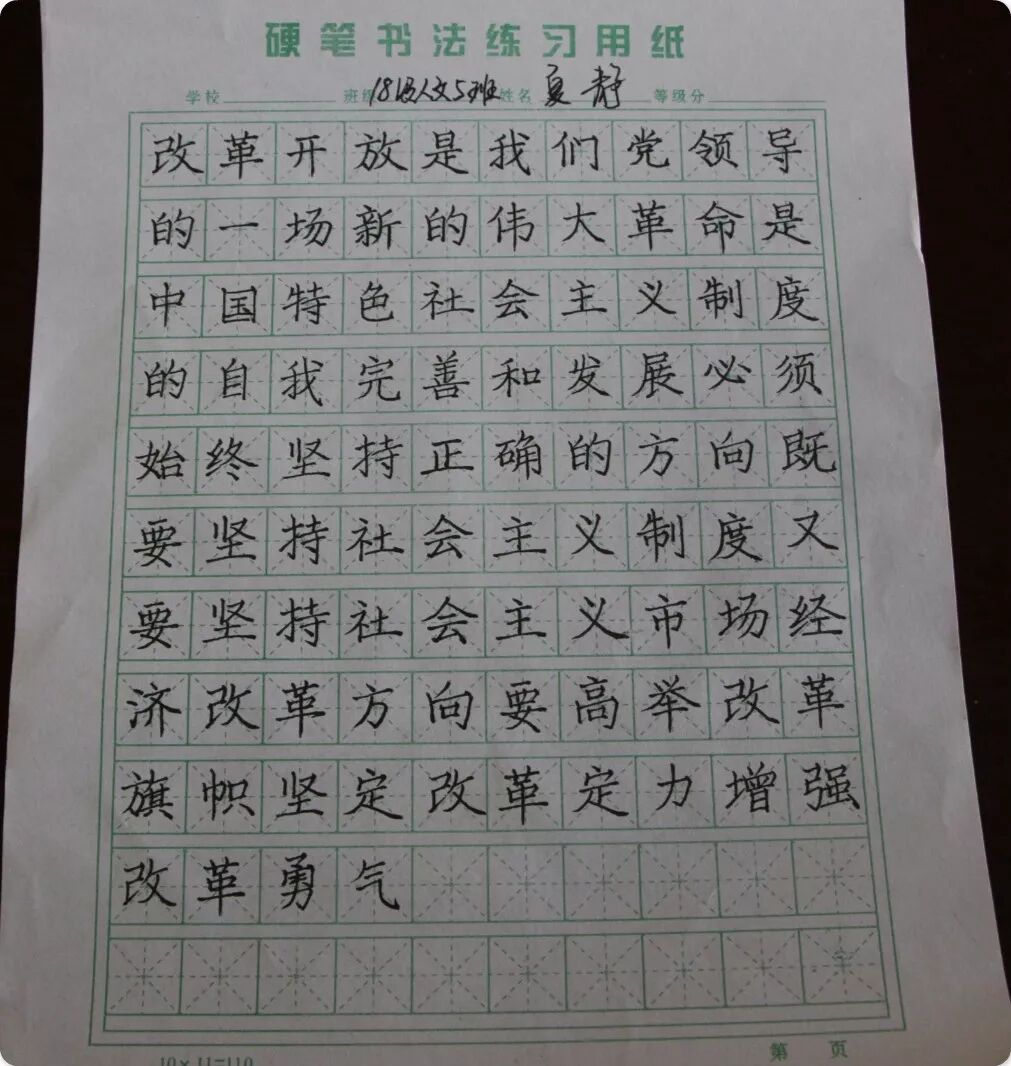 硬笔书法练习用纸
学校 班级 18级人文5班 姓名 夏静 等级分
改革开放是我们党领导
的一场新的伟大革命是
中国特色社会主义制度
的自我完善和发展必须
始终坚持正确的方向既
要坚持社会主义制度又
要坚持社会主义市场经
济改革方向要高举改革
旗帜坚定改革定力增强
改革勇气
10×11=110
第 页